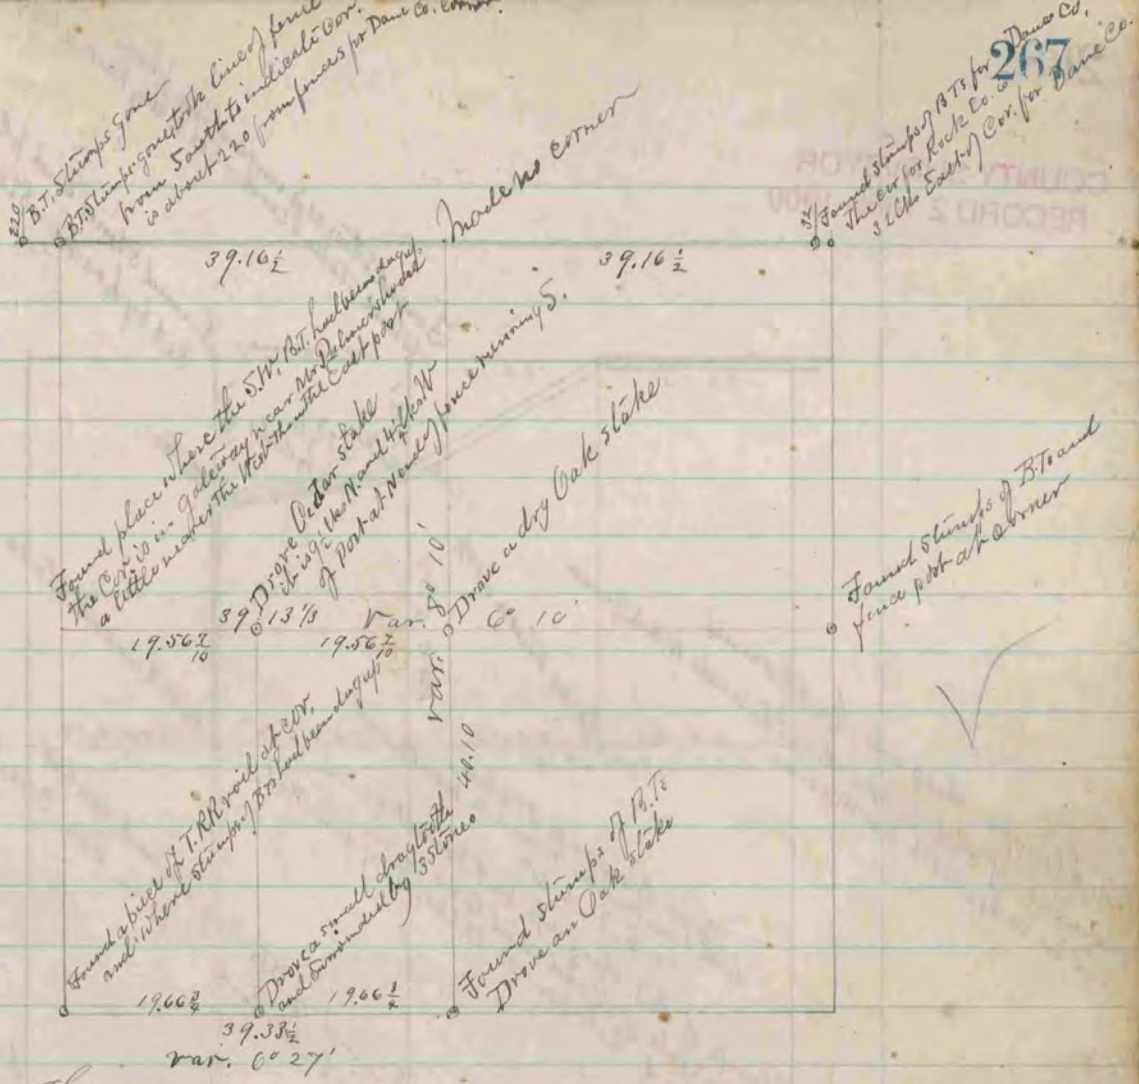 267
B.T. Stumps gone
220
B.T. Stumps gone took line of fence
from South to indicate Cor.
is about 220 from fences for Dane Co. Corner.
Made no corner
32
Found stumps of B Ts for Dane Co.
The cor for Rock Co. is
32 lks East of Cor. for Dane Co.
39.16 1/2
39.16 1/2
Found place where the S.W. B.T. had been dug up.
the Cor. is in gateway near Mr.
a little nearer the West than the East post
Drove Cedar stake
it is lks N. and lks W
of Post at N end of fence running S.
Drove a dry Oak stake
Found stumps of B.Ts and
fence post at corner
39 13 1/3
Var. 6° 10'
19.56 7/10
19.56 7/10
var. 8° 10'
40.10
Found a piece of T. RR rail at cor.
and where stumps of B Ts had been dug up
Drove a small drag tooth
and surrounded by 3 stones
Found stumps of B.Ts
Drove an Oak stake
19.66 3/4
19.66 3/4
39.33 1/2
var. 6° 27'
COUNTY SURVEYOR
RECORD 2